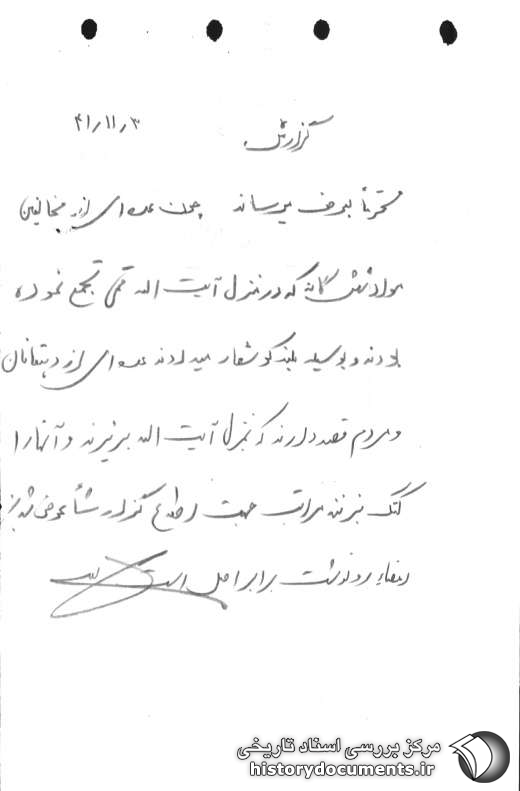 گزارش ۴۱/۱۱/۳
محترماً بعرض میرساند چون عده‌ای از مخالفین
مواد ششگانه که در منزل آیت اله قمی تجمع نموده
بودند و بوسیله بلندگو شعار میدادند عده‌ای از دهقانان
و مردم قصد دارند که بمنزل آیت اله بریزند و آنها را
کتک بزنند مراتب جهت اطلاع گزارشاً عرض شد
امضاء رونوشت برابر اصل است
مرکز بررسی اسناد تاریخی
historydocuments.ir